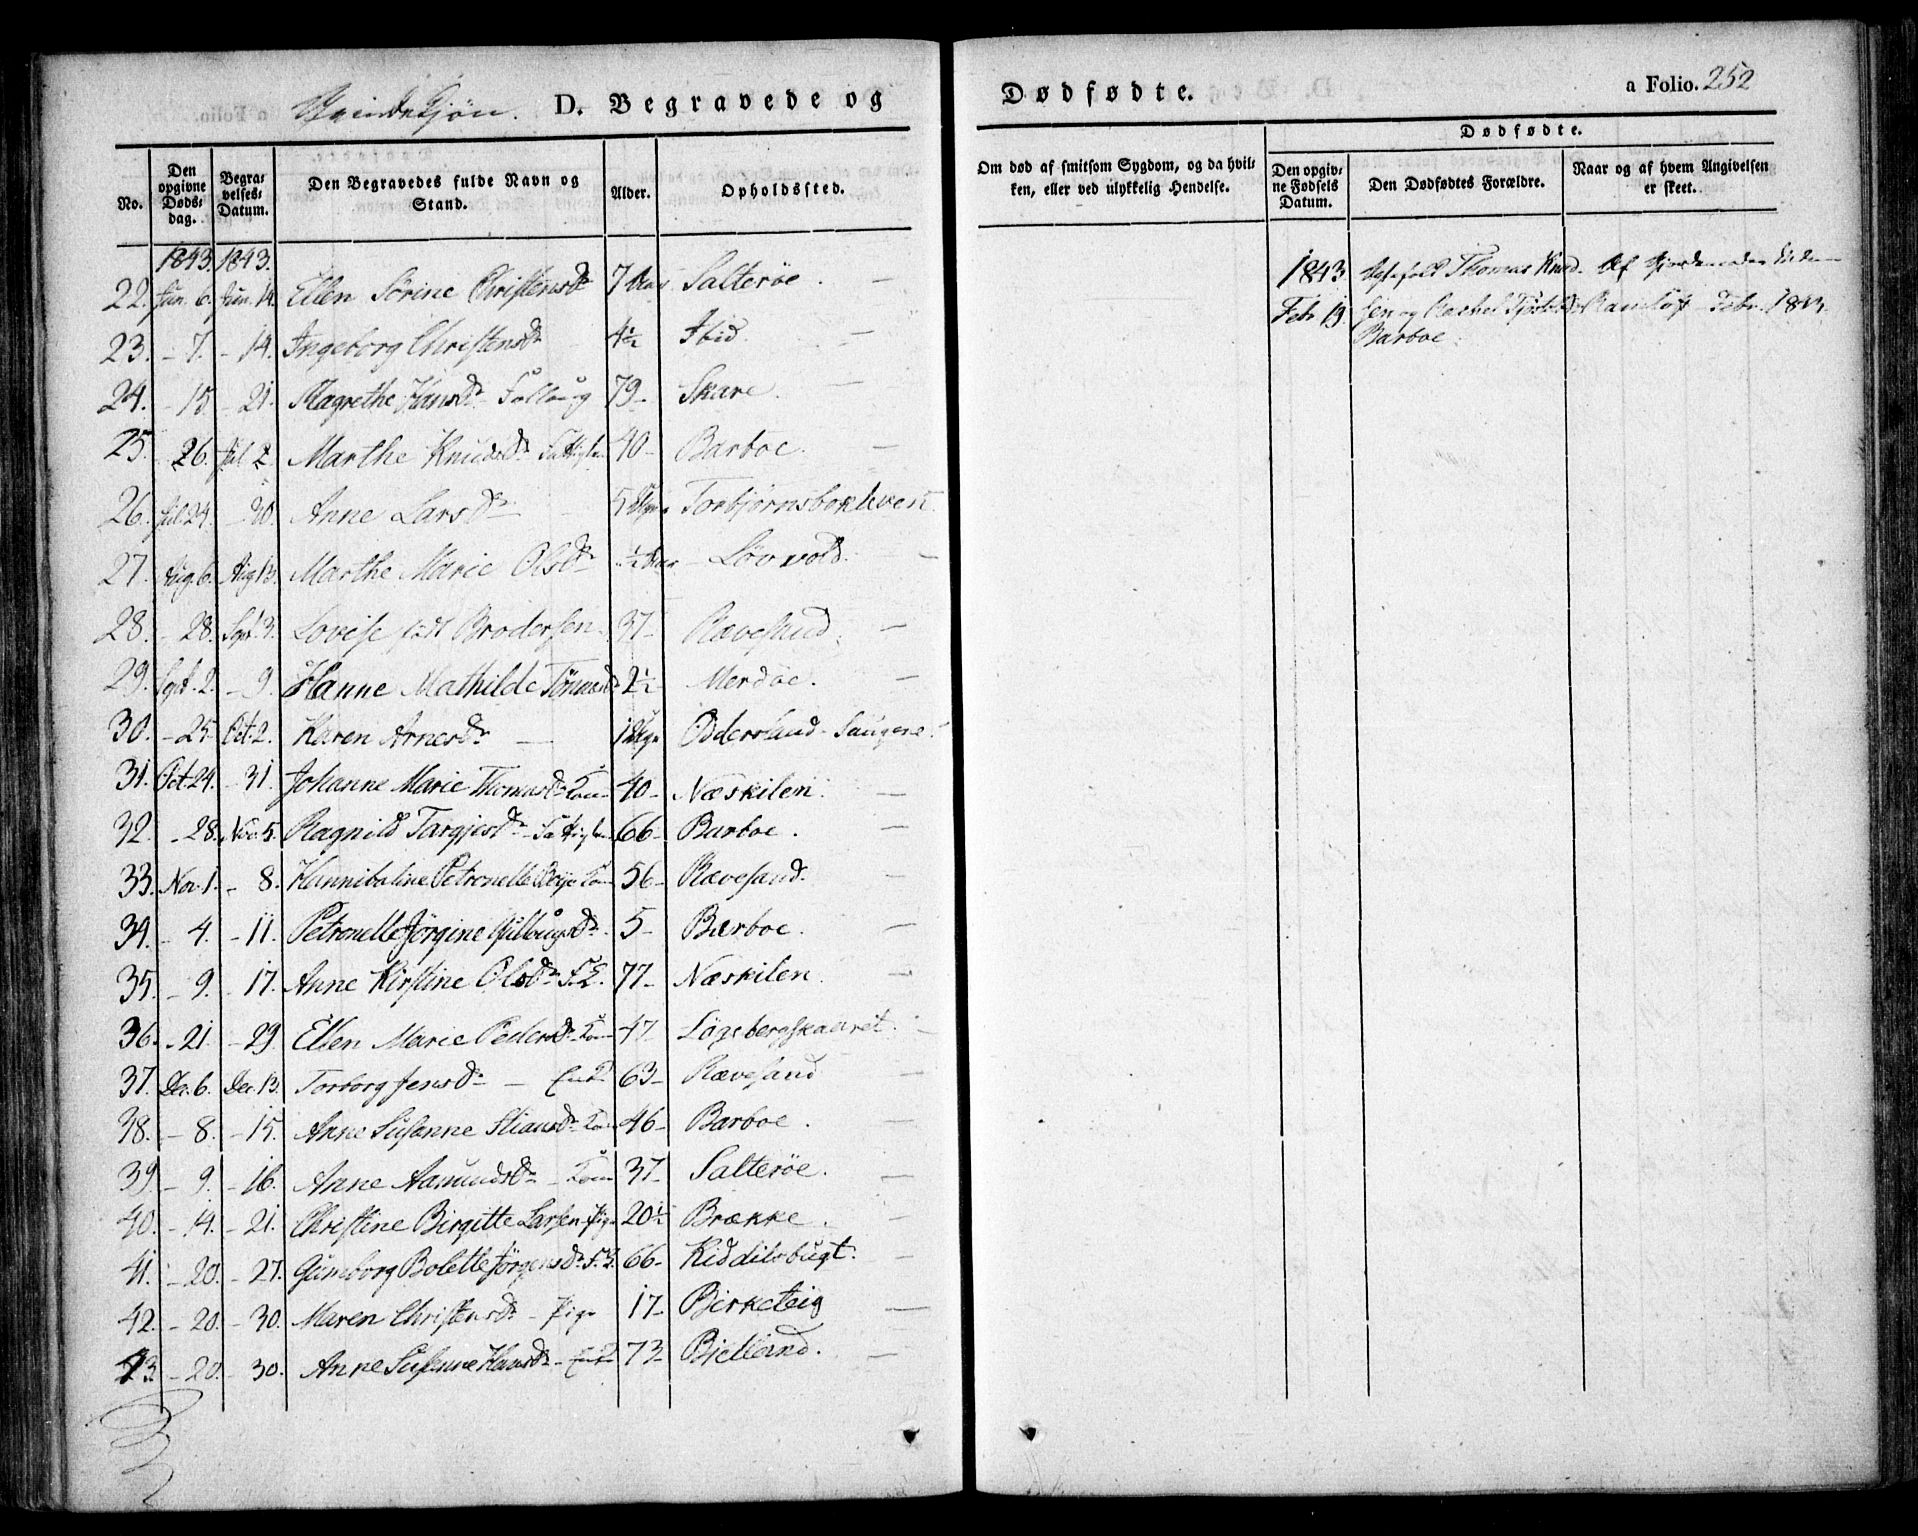 Qvindekjøn. D. Begravede og Dødfødte. a Folio. 252
No. Den opgivne Døds-dag. Begravelses-Datum. Den Begravedes fulde Navn og Stand. Alder. Opholdssted.
Om død af smitsom Sygdom, og da hvilken, eller ved ulykkelig Hendelse.
Dødfødte.
Den opgivne Fødsels Datum. Den Dødfødtes Forældre. Naar og af hvem Angivelsen er skeet.
1843. 1843.
22. Jun. 6. Jun. 14. Ellen Sörine Christensdr 7 Salteröe. —
23. - 7. - 14. Ingeborg Christensdr 4½ Ibid. —
24. - 15 - 21. Magrethe Hansdr 79 - Skare. —
25. 26. Jul. 2. Marthe Knudsdr 40 - Barboe. —
26. Jul. 24. - 30. Anne Larsdr — 5 Torbjørnsbokleven
27. Aug. 6. Aug 13. Marthe Marie Olsdr ½ Løvvold. —
28. - 28. Sept. 3. Lovise födt Brodersen. 37 - Rævesand. —
29. Sept. 2. - 9. Hanne Mathilde 2½ Merdöe. —
30. - 25 Oct. 2. Karen Arnesdr — 1 Oddersland
31. Oct. 24. - 31. Johanne Marie Thomasdr 40 - Næskilen. —
32. - 28. Nov. 5. Ragnild Targjesdr 66 - Barboe. —
33. Nov. 1. - 8. Hannibaline Petronelle 56 - Rævesand. —
34. - 4. - 11. Petronelle Jörgine 5 - Barboe. —
35. - 9. - 17. Anne Kirstine Olsdr 77 - Næskilen. —
36. - 21. - 29. Ellen Marie Pedersdr 47 -
37. Dec. 6. Dec. 13. Torborg Jensdr — 63 - Rævesand —
38. - 8. - 15. Anne Susanne 46 - Barboe. —
39. - 9. - 16. Anne Aamundsdr 37 - Salteröe. —
40. - 14. - 21. Christine Birgitte Larsen Pige 20½ Brække. —
41. - 20. - 27. Gunborg Bolette Jörgensdr 66 - Kiddilsbugt. —
42. - 20. - 30. Maren Christensdr - Pige 17 - Birketeig —
43. - 20. - 30. Anne Susanne Hansdr 73 - Bjelland. —
1843. Thomas Af
Febr 19. og Rachel Febr. 1843.
Barboe.